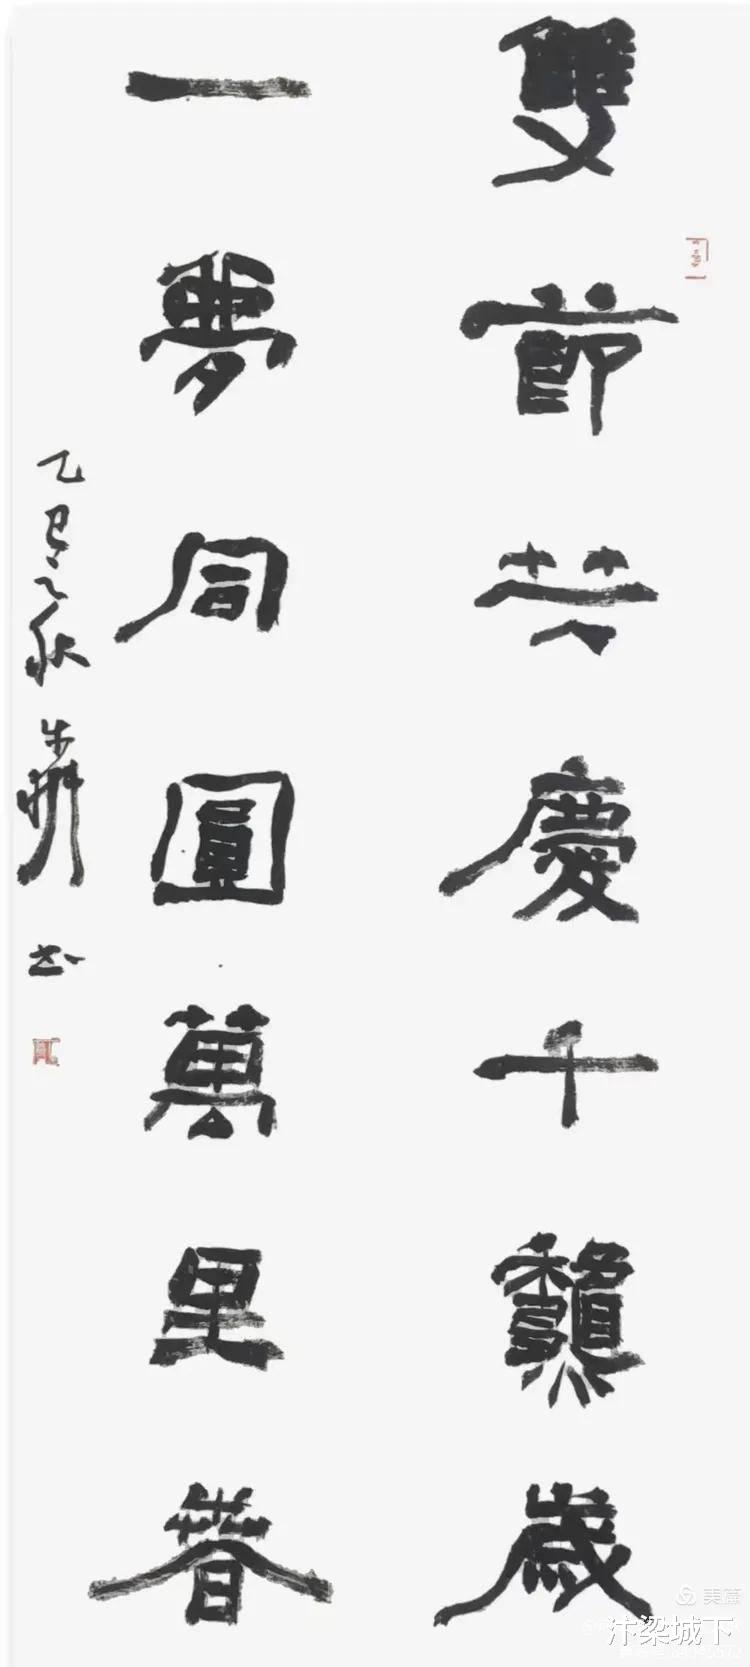 雙節共慶千龝歲
一夢同圓萬里春
乙巳之秋
书
美篇
汴梁城下